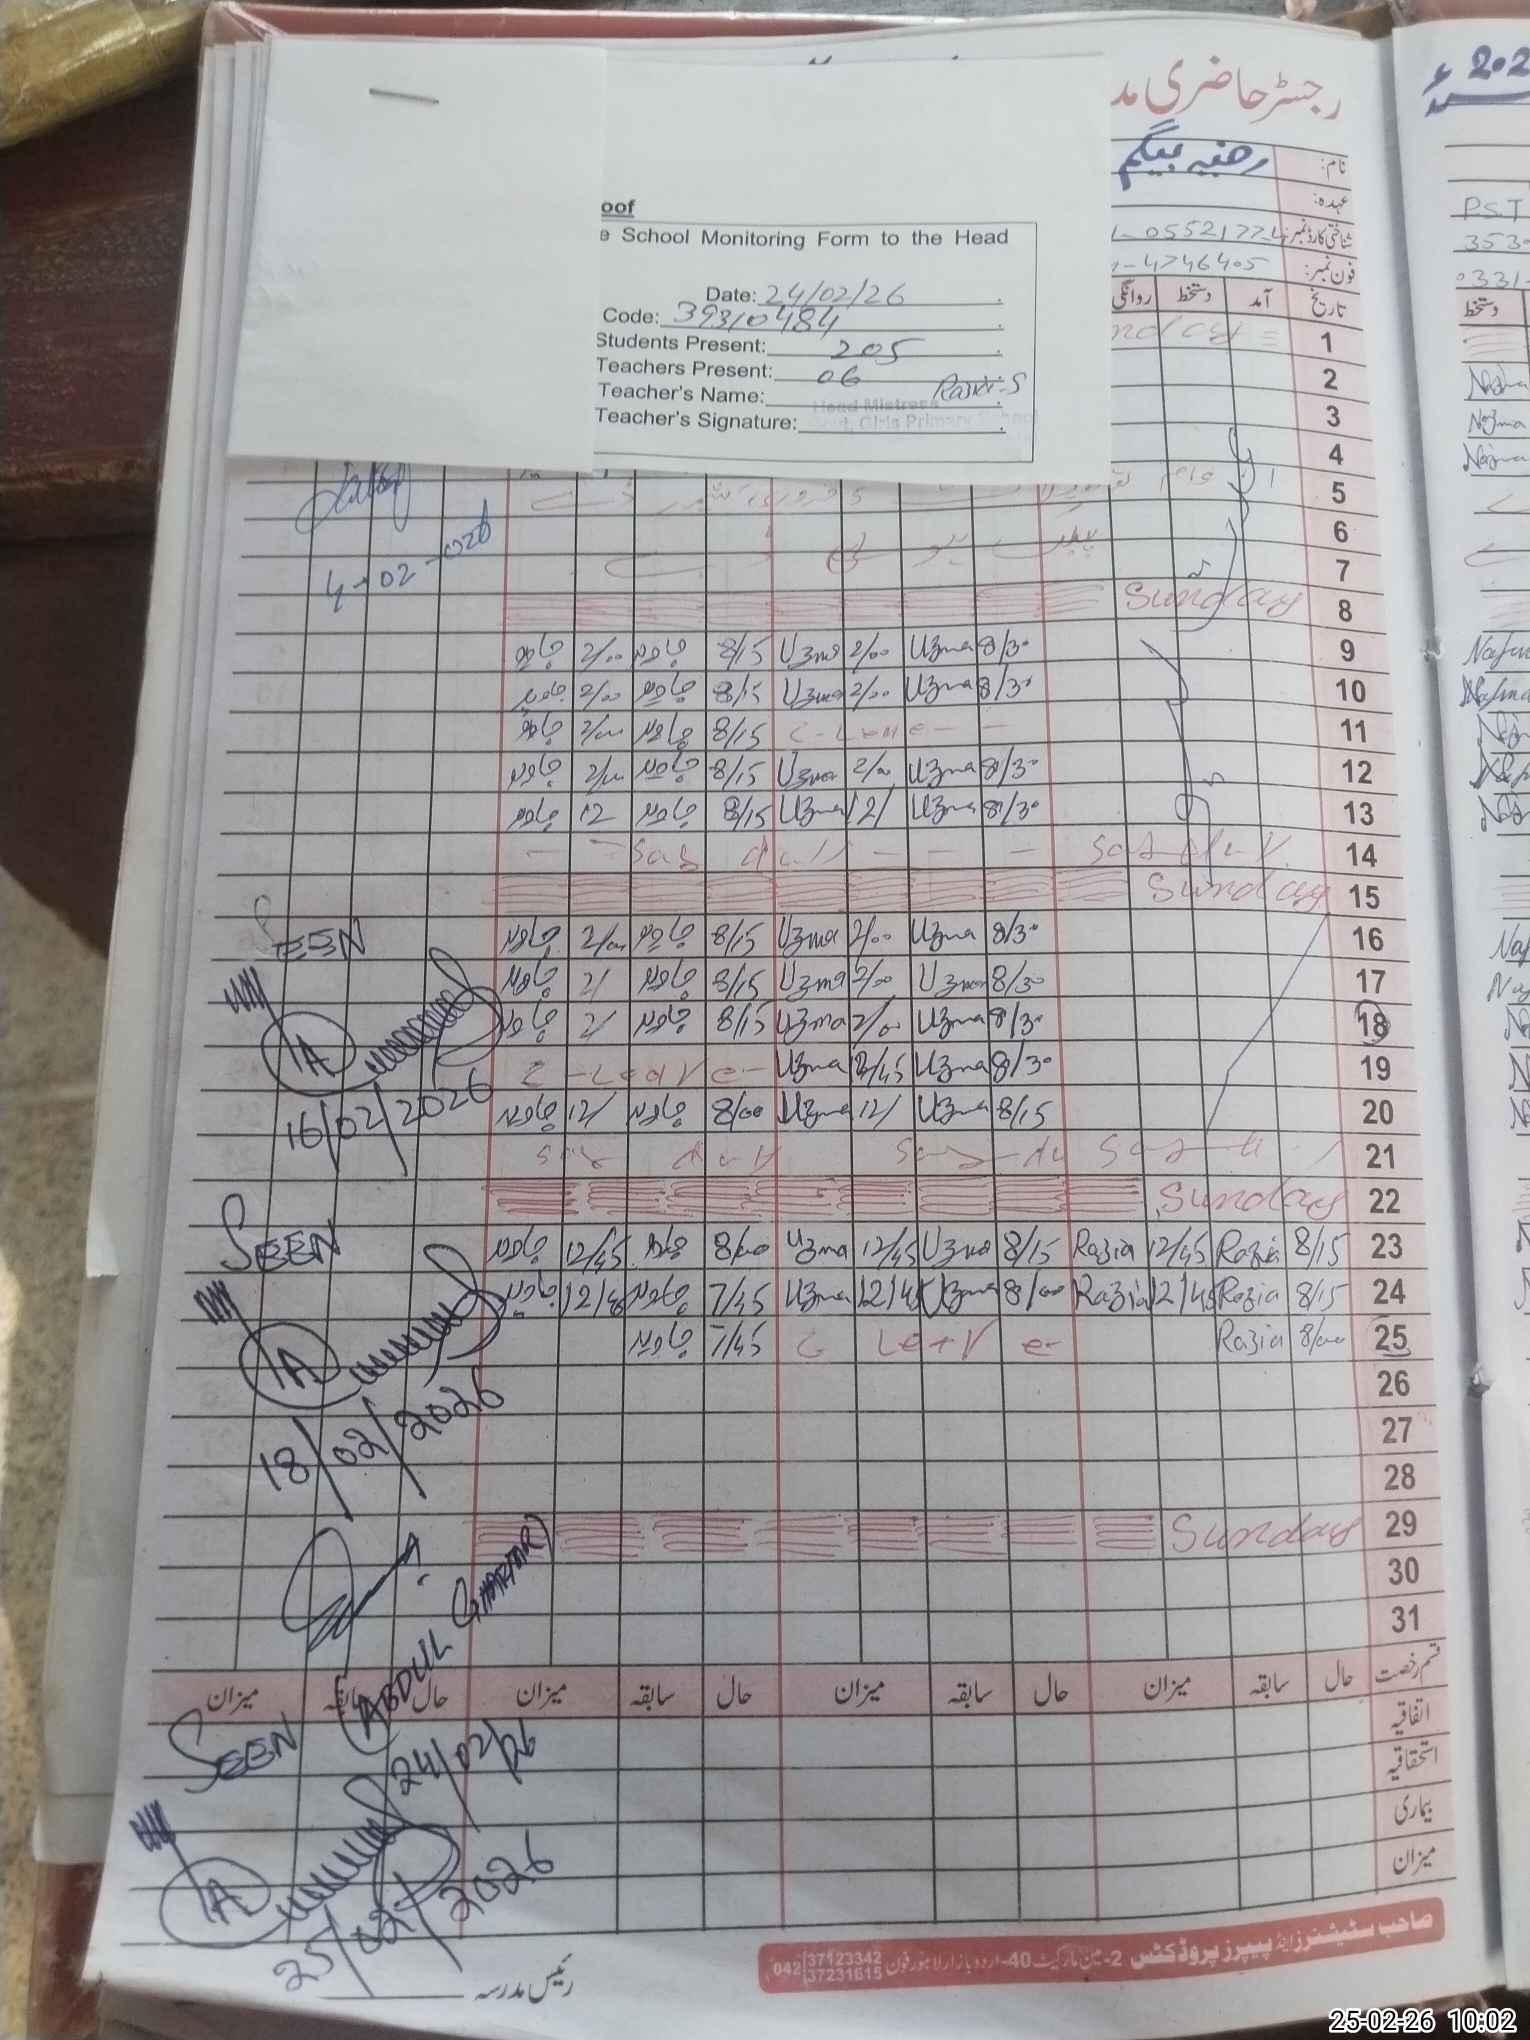 رجسٹر حاضری مد
202
نام: رضیہ بیگم
عہدہ:
شناختی کارڈ نمبر: 1-0552177-4
فون نمبر: 4746405
oof
e School Monitoring Form to the Head
Date: 24/02/26
Code: 39310484
Students Present: 205
Teachers Present: 06
Teacher's Name: Razia-S
Teacher's Signature:
Head Mistress
Govt. Girls Primary School
PST
353
0331-
تاریخ آمد دستخط روانگی
دستخط
1
2 Najma
3 Najma
4 Najma
4-02-026
5
6
7
8 Sunday
9 8/30 Uzma 2/00 Uzma 8/15 جاوید 2/00 جاوید
10 8/30 Uzma 2/00 Uzma 8/15 جاوید 2/00 جاوید
11 C-Leave 8/15 جاوید 2/00 جاوید
12 8/30 Uzma 2/00 Uzma 8/15 جاوید 2/00 جاوید
13 8/30 Uzma 12/ Uzma 8/15 جاوید 12 جاوید
14
15 Sunday
16 8/30 Uzma 2/00 Uzma 8/15 جاوید 2/00 جاوید
17 8/30 Uzma 2/00 Uzma 8/15 جاوید 2/ جاوید
18 8/30 Uzma 2/00 Uzma 8/15 جاوید 2/ جاوید
19 8/30 Uzma 12/45 Uzma C-Leave
20 8/15 Uzma 12/ Uzma 8/00 جاوید 12/ جاوید
21
22 Sunday
23 8/15 Razia 12/45 Razia 8/15 Uzma 12/45 Uzma 8/00 جاوید 12/45 جاوید
24 8/15 Razia 12/45 Razia 8/00 Uzma 12/45 Uzma 7/45 جاوید 12/45 جاوید
25 8/00 Razia C Leave 7/45 جاوید
26
27
28
29 Sunday
30
31
SEEN
IA
16/02/2026
SEEN
IA
18/02/2026
(ABDUL GHAFFAR)
24/02/26
SEEN
IA
25/02/2026
قسم رخصت حال سابقہ میزان حال سابقہ میزان حال سابقہ میزان حال سابقہ میزان
اتفاقیہ
استحقاقیہ
بیماری
میزان
رئیس مدرسہ
صاحب سٹیشنرز اینڈ پیپرز پروڈکٹس 2-مین مارکیٹ 40-اردو بازار لاہور فون 042 37123342 37231615
25-02-26 10:02